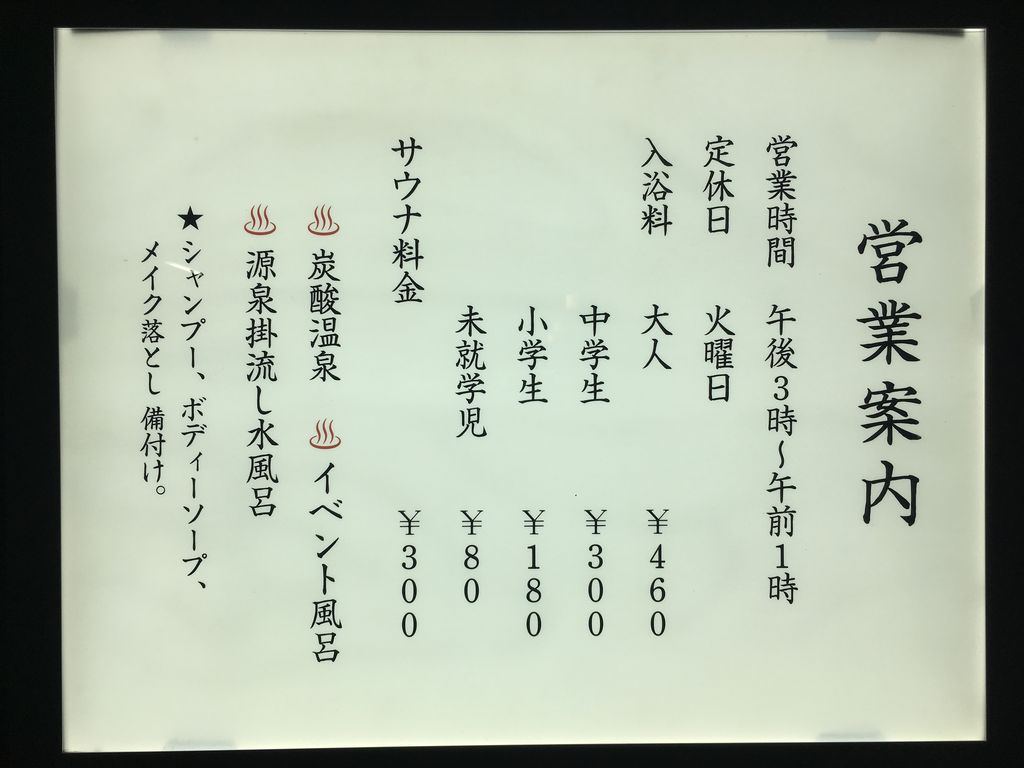 営業案内
営業時間 午後3時~午前1時
定休日 火曜日
入浴料 大人 ¥460
中学生 ¥300
小学生 ¥180
未就学児 ¥80
サウナ料金 ¥300
♨ 炭酸温泉 ♨ イベント風呂
♨ 源泉掛流し水風呂
★シャンプー、ボディーソープ、
メイク落とし 備付け。